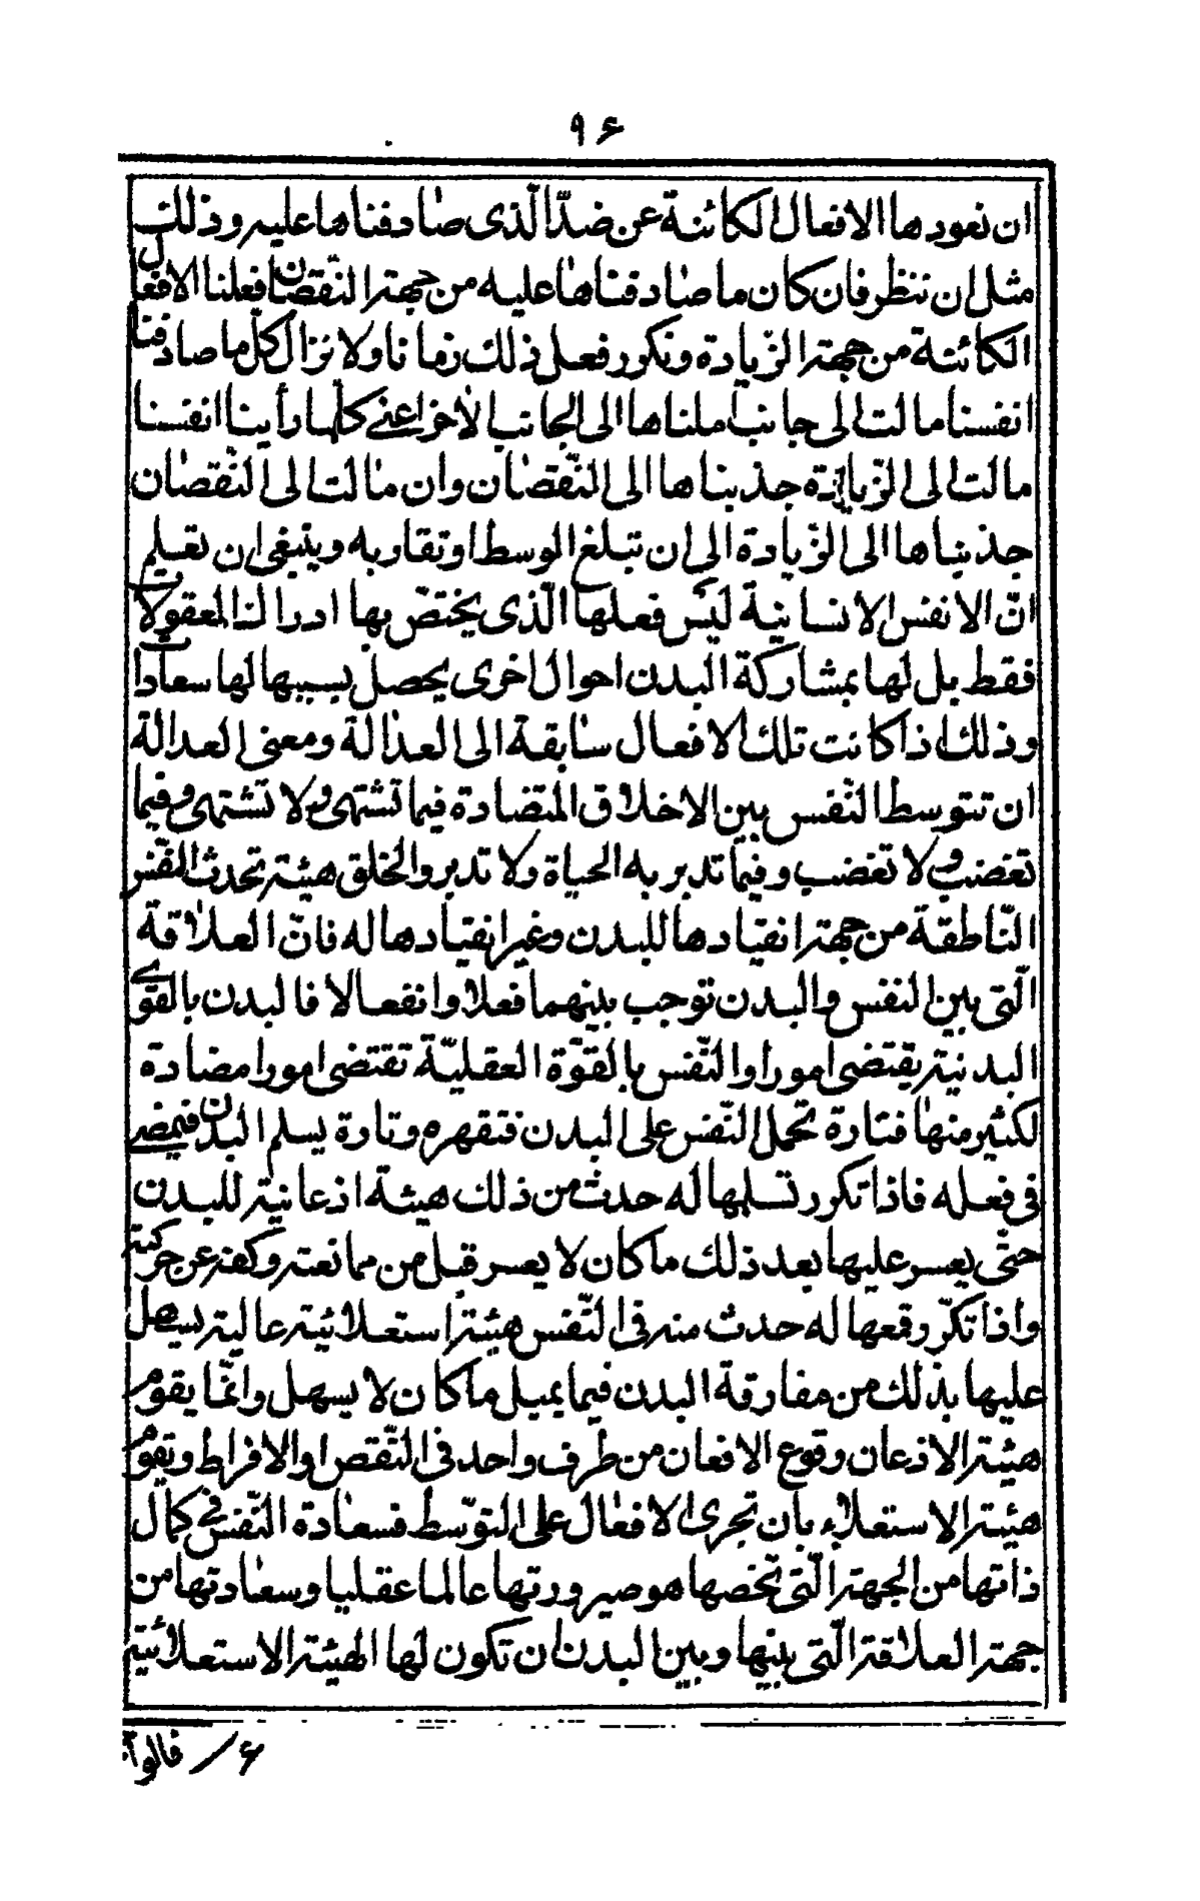 ٩۶
ان نعودها الافعال الكائنة عن ضدّ الّذى صادفناها عليه وذلك
مثل ان ننظر فان كان ما صادفناها عليه من جهة النّقصان فعلنا الافعال
الكائنة من جهة الزّيادة ونكرر فعل ذلك زمانا ولا نزال كلّ ما صادفنا
انفسنا مالت الى جانب املناها الى الجانب الاخر اعنى كلّما رأينا انفسنا
مالت الى الزّيادة جذبناها الى النّقصان وان مالت الى النّقصان
جذبناها الى الزّيادة الى ان تبلغ الوسط او تقاربه وينبغى ان تعلم
انّ الانفس الانسانية ليس فعلها الّذى يختصّ بها ادراك المعقولات
فقط بل لها بمشاركة البدن احوال اخرى يحصل بسببها لها سعادات
وذلك اذا كانت تلك الافعال سابقة الى العدالة ومعنى العدالة
ان تتوسط النّفس بين الاخلاق المتضادة فيما تشتهى ولا تشتهى وفيما
تغضب ولا تغضب وفيما تدبر به الحياة ولا تدبر والخلق هيئة تحدث للنّفس
النّاطقة من جهة انقيادها للبدن وغير انقيادها له فانّ العلاقة
الّتى بين النفس والبدن توجب بينهما فعلا وانفعالا فالبدن بالقوى
البدنية يقتضى امورا والنّفس بالقوّة العقليّة تقتضى امورا مضادة
لكثير منها فتارة تحمل النّفس على البدن فتقهره وتارة يسلم البدن فيمضى
فى فعله فاذا تكرر تسلمها له حدث من ذلك هيئة اذعانية للبدن
حتّى يعسر عليها بعد ذلك ما كان لا يعسر قبل من ممانعته وكفه عن حركته
واذا تكرّر قمعها له حدث منه فى النّفس هيئة استعلائية عالية يسهل
عليها بذلك من مفارقة البدن فيما يميل ما كان لا يسهل وانّما يقوم
هيئة الاذعان وقوع الافعان من طرف واحد فى النّقص او الافراط ويقوم
هيئة الاستعلاء بان تجرى الافعال على التوّسط فسعادة النّفس فى كمال
ذاتها من الجهة الّتى تخصها هو صيرورتها عالما عقليا وسعادتها من
جهة العلاقة الّتى بينها وبين البدن ان تكون لها الهيئة الاستعلائية
۶ قالوا